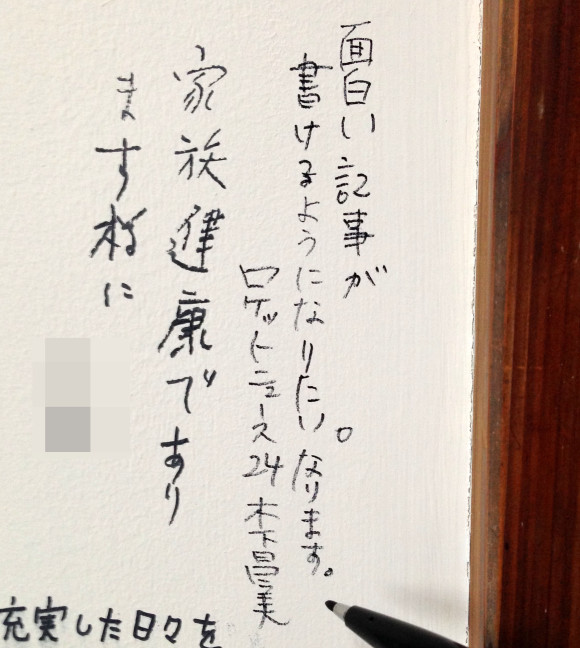 面白い記事が
書けるようになりたい。なります。
ロケットニュース24 木下昌美
家族健康であり
ます様に
充実した日々を